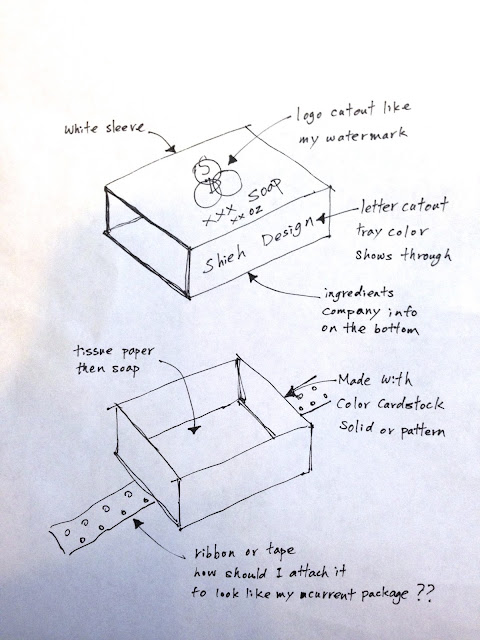 white sleeve
logo catout like
my watermark
S
D
xxx SOAP
xx oz
Shieh Design
letter catout
tray color
shows through
ingredients
company info
on the bottom
tissue paper
then soap
Made with
Color Cardstock
Solid or pattern
ribbon or tape
how should I attach it
to look like my current package ??